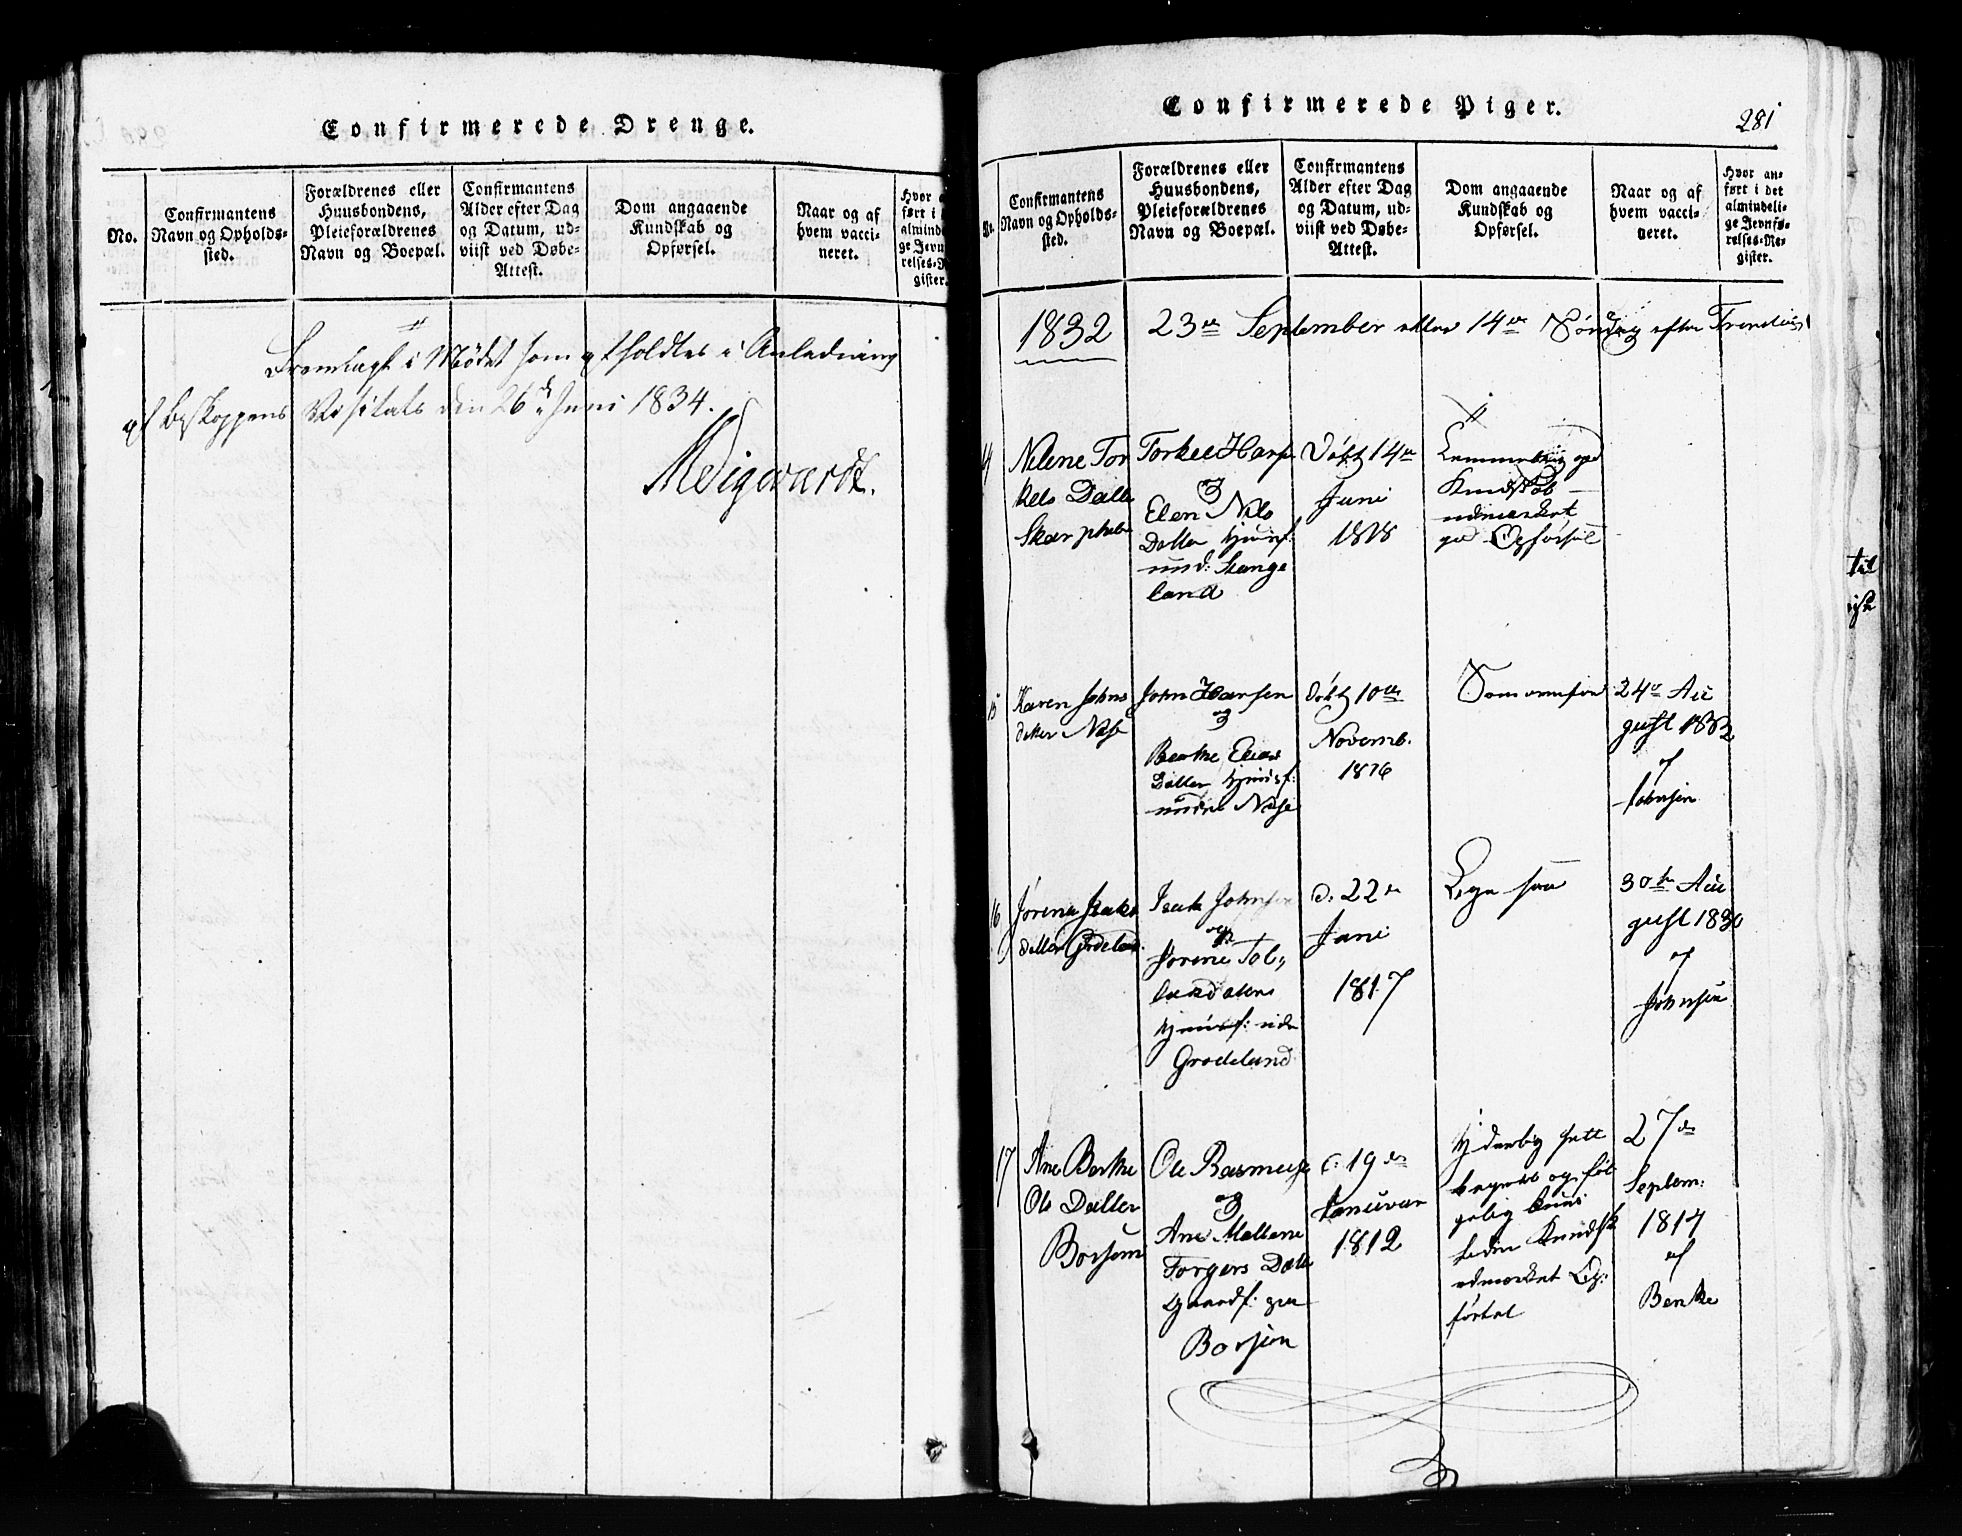 Confirmerede Drenge.
No.
Confirmantens
Navn og Opholds-
sted.
Forældrenes eller
Huusbondens,
Pleieforældrenes
Navn og Boepæl.
Confirmantens
Alder efter Dag
og Datum, ud-
viist ved Døbe-
Attest.
Dom angaaende
Kundskab og
Opførsel.
Naar og af
hvem vacci-
neret.
Hvor
ført i
almind
ge Jevn
relses-R
gister.
Fremlagt i Mødet som afholdtes i Anledning
af Biskoppens Visitats den 26 Juni 1834.
Confirmerede Piger.
281
Confirmantens
Navn og Opholds-
sted.
Forældrenes eller
Huusbondens,
Pleieforældrenes
Navn og Boepæl.
Confirmantens
Alder efter Dag
og Datum, ud-
viist ved Døbe-
Attest.
Dom angaaende
Kundskab og
Opførsel.
Naar og af
hvem vacci-
neret.
Hvor an-
ført i det
almindeli-
ge Jevnfø-
relses-Re-
gister.
1832 23de September eller 14de Søndag efter
Nelene Tor
kels Datter
Torkel
og
Elen Nels
Datter
und: Stange
land
Døbt 14de
Juni
1818
god
Kundskab
udmærket
god Opførsel
15
Karen Johns
datter Nese
John Hansen
og
Berthe Elias
Datter
under Nese
Døbt 10de
Novemb.
1816
Som ovenfor
24de Au
gust 1832
af
Johnsen
16
Isaks
datter Grodeland
Isak Johnsen
og
Jorene Tol
laksdatter
Grodeland
d. 22de
Juni
1817
Lige saa
30te Au
gust 1830
af
Johnsen
17
Ane Berthe
Ols Datter
Borsem
Ole Rasmus
og
Ane Malene
Torgers Datt
Gaardf: paa
Borsem
d. 19de
Januvar
1812
Yderlig
og føl
gelig kuns
Kundsk
udmærket Op:
førsel
27de
Septem:
1814
af
Benke